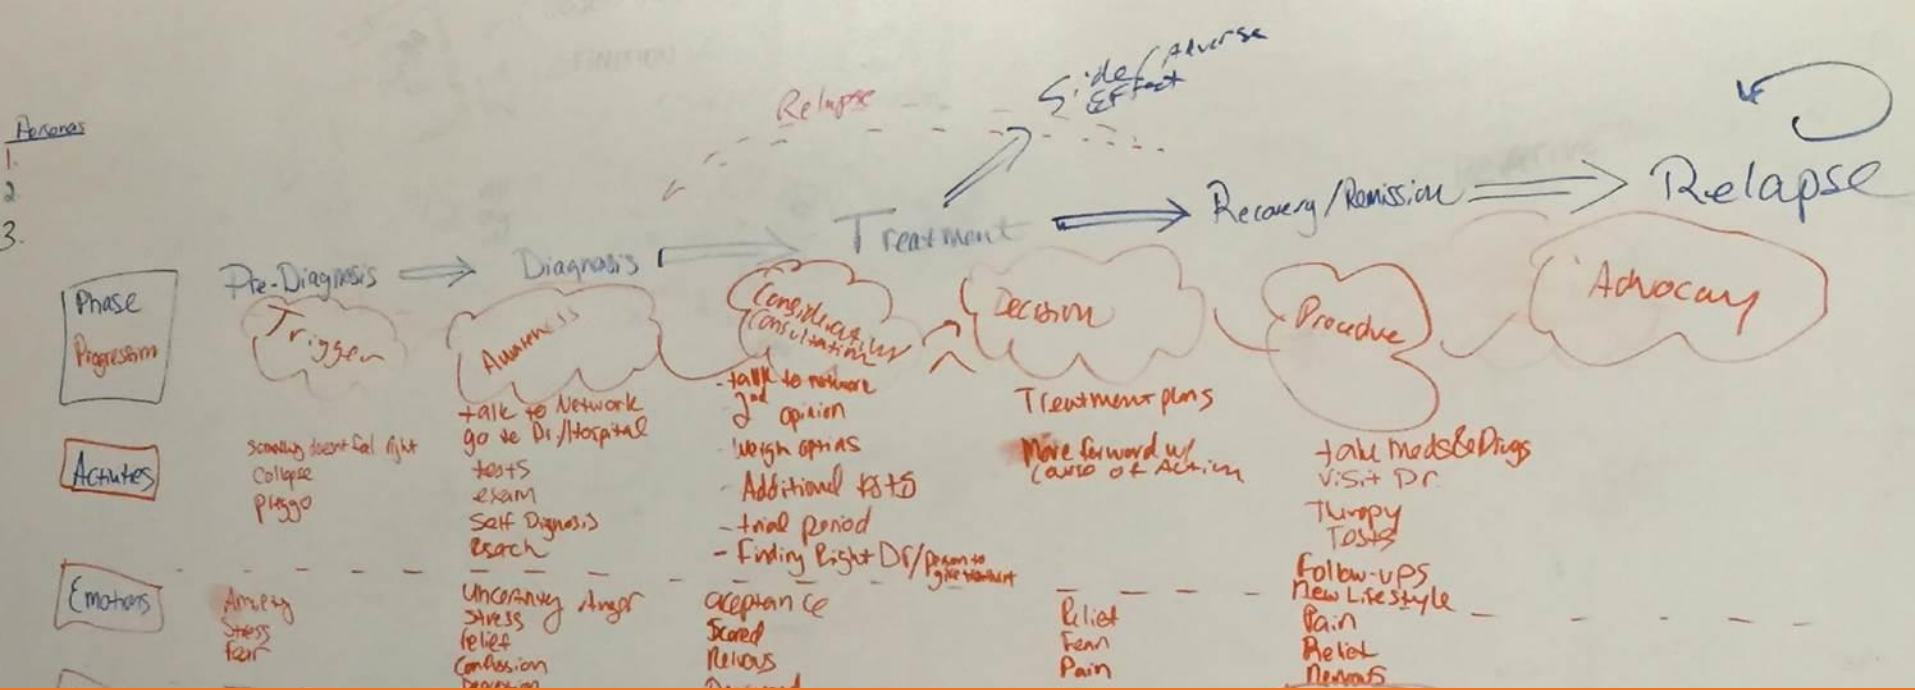 Personas
1.
2
3.
Relapse
Side/Adverse
Effect
Pre-Diagnosis
Diagnosis
Treatment
Recovery/Remission
Relapse
Phase
Progression
Trigger
Awareness
Consideration
Consultation
Decision
Procedure
Advocacy
Activities
doesnt feel right
Collapse
talk to Network
go to Dr./Hospital
tests
exam
Self Diagnosis
- talk to
2nd opinion
- Weigh options
- Additional tests
- trial period
- Finding Right Dr/person to
give
Treatment plans
Move forward w/
of Action
take meds & Drugs
Visit Dr.
Therapy
Tests
Follow-ups
New Lifestyle
Emotions
Anxiety
Stress
fear
Anger
Stress
relief
aceptance
Scared
Relief
Fear
Pain
Pain
Relief
Nervous